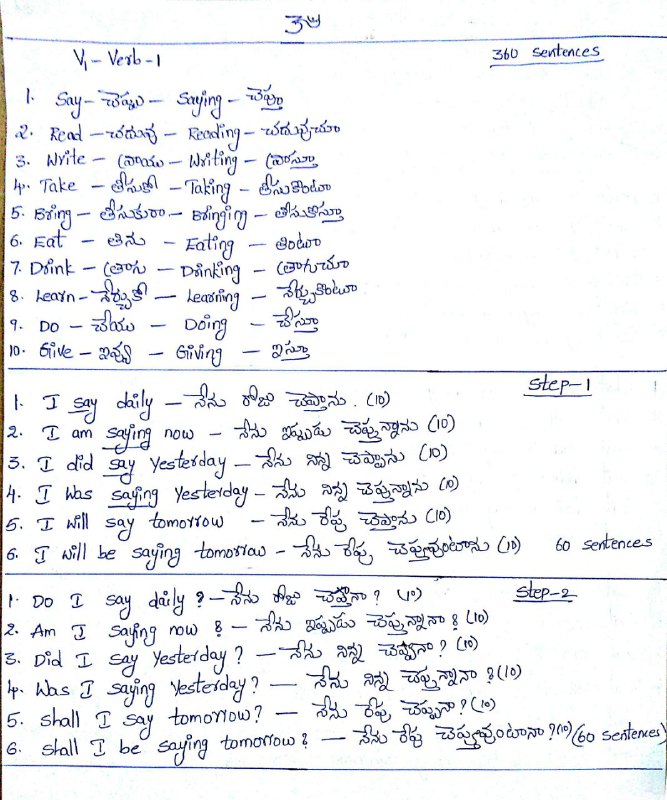 3
V1 - Verb - 1 360 sentences
1. Say - చెప్పు - Saying - చెప్తూ
2. Read - చదువు - Reading - చదువుచూ
3. Write - వ్రాయు - Writing - వ్రాస్తూ
4. Take - తీసుకో - Taking - తీసుకొంటూ
5. Bring - తీసుకురా - Bringing - తీసుకొస్తూ
6. Eat - తిను - Eating - తింటూ
7. Drink - త్రాగు - Drinking - త్రాగుచూ
8. Learn - నేర్చుకో - Learning - నేర్చుకొంటూ
9. Do - చేయు - Doing - చేస్తూ
10. Give - ఇవ్వు - Giving - ఇస్తూ
Step-1
1. I say daily - నేను రోజు చెప్తాను. (10)
2. I am saying now - నేను ఇప్పుడు చెప్తున్నాను (10)
3. I did say yesterday - నేను నిన్న చెప్పాను (10)
4. I was saying yesterday - నేను నిన్న చెప్తున్నాను (10)
5. I will say tomorrow - నేను రేపు చెప్తాను (10)
6. I will be saying tomorrow - నేను రేపు చెప్తూవుంటాను (10) 60 sentences
Step-2
1. Do I say daily ? - నేను రోజు చెప్తానా? (10)
2. Am I saying now ? - నేను ఇప్పుడు చెప్తున్నానా ? (10)
3. Did I say yesterday ? - నేను నిన్న చెప్పానా ? (10)
4. Was I saying yesterday? - నేను నిన్న చెప్తున్నానా ? (10)
5. shall I say tomorrow? - నేను రేపు చెప్పనా ? (10)
6. shall I be saying tomorrow ? - నేను రేపు చెప్తూవుంటానా ? (10) (60 sentences)